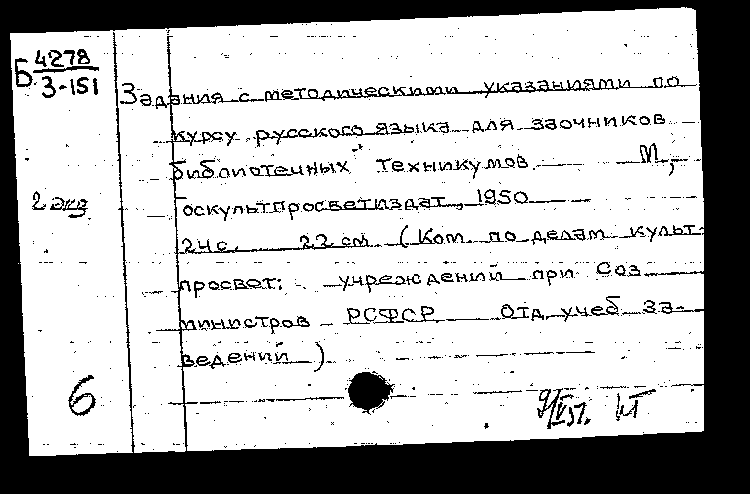 Б 4278
З-151
Задания с методическими указаниями по
курсу русского языка для заочников
библиотечных техникумов М.,
Госкультпросветиздат, 1950
24с. 22 см (Ком. по делам культ-
просвет. учреждений при Сов
министров РСФСР Отд. учеб. за-
ведений)
2 экз
6
9/V51.